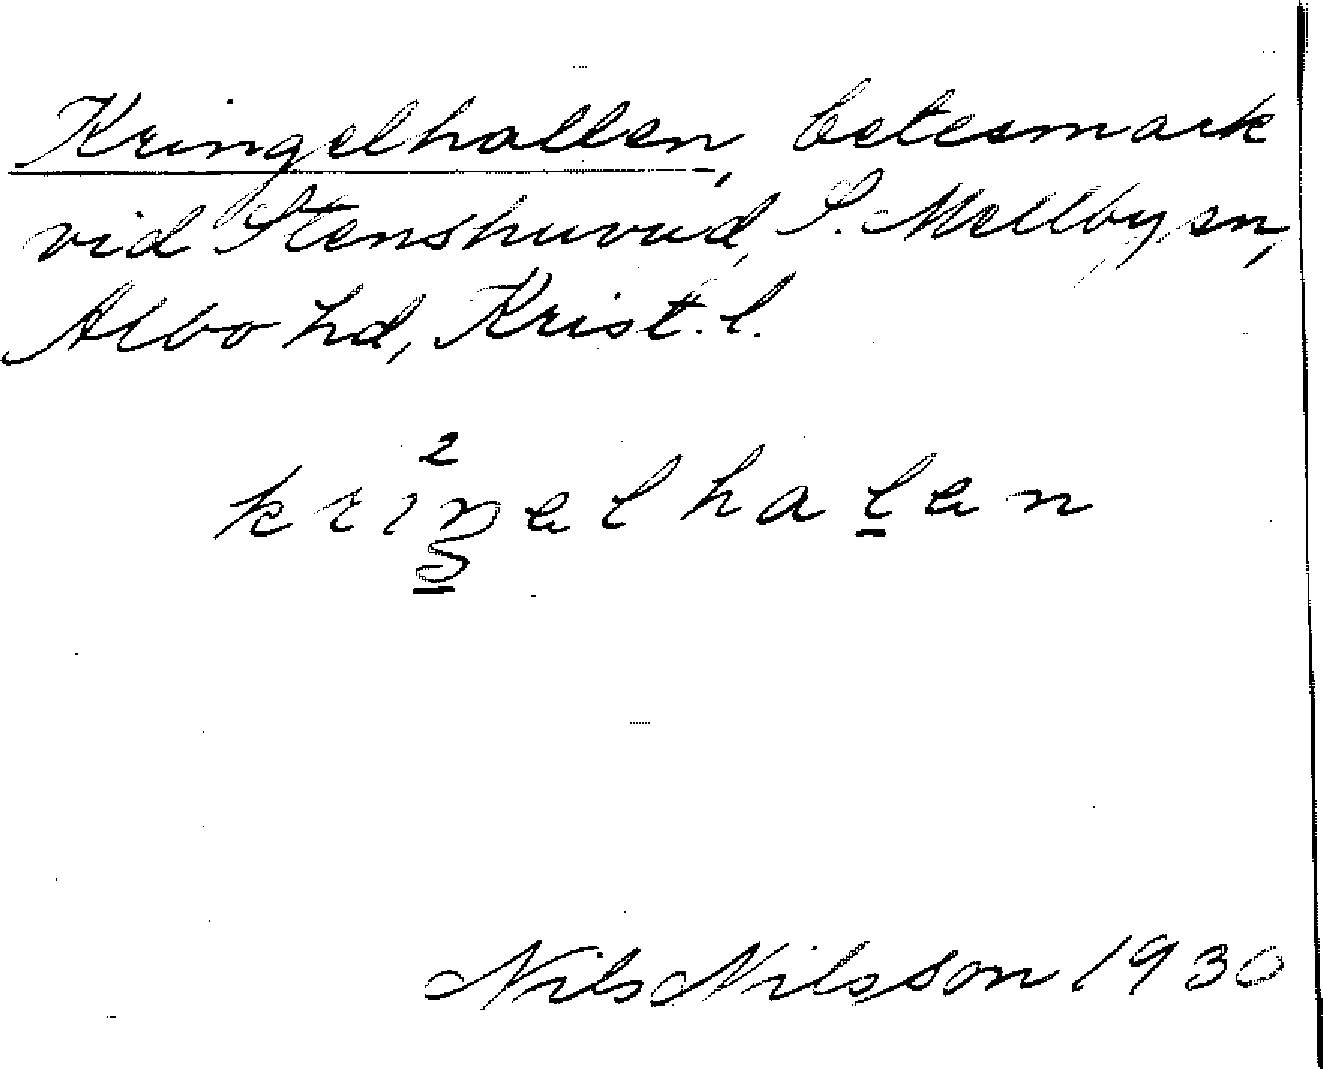 Kringelhallen, betesmark
vid Stenshuvud, S. Mellby sn,
Albo hd, Krist. l.
2
kriŋelhalen
Nils Nilsson 1930